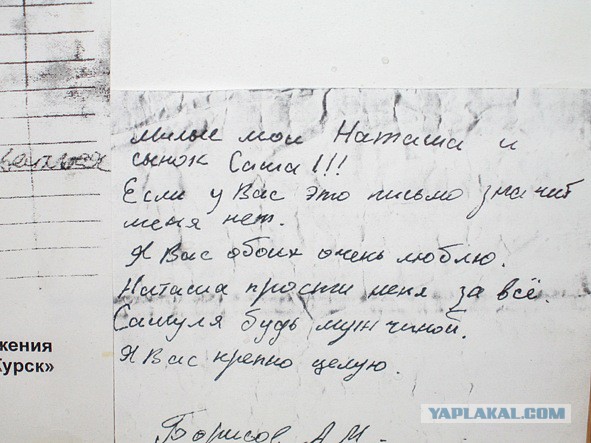 милые мои Наташа и
сынок Саша!!!
Если у Вас это письмо значит
меня нет.
Я Вас обоих очень люблю.
Наташа прости меня за всё.
Сашуля будь мужчиной.
Я Вас крепко целую.
Борисов А.М.
жения
урск»
YAPLAKAL.COM